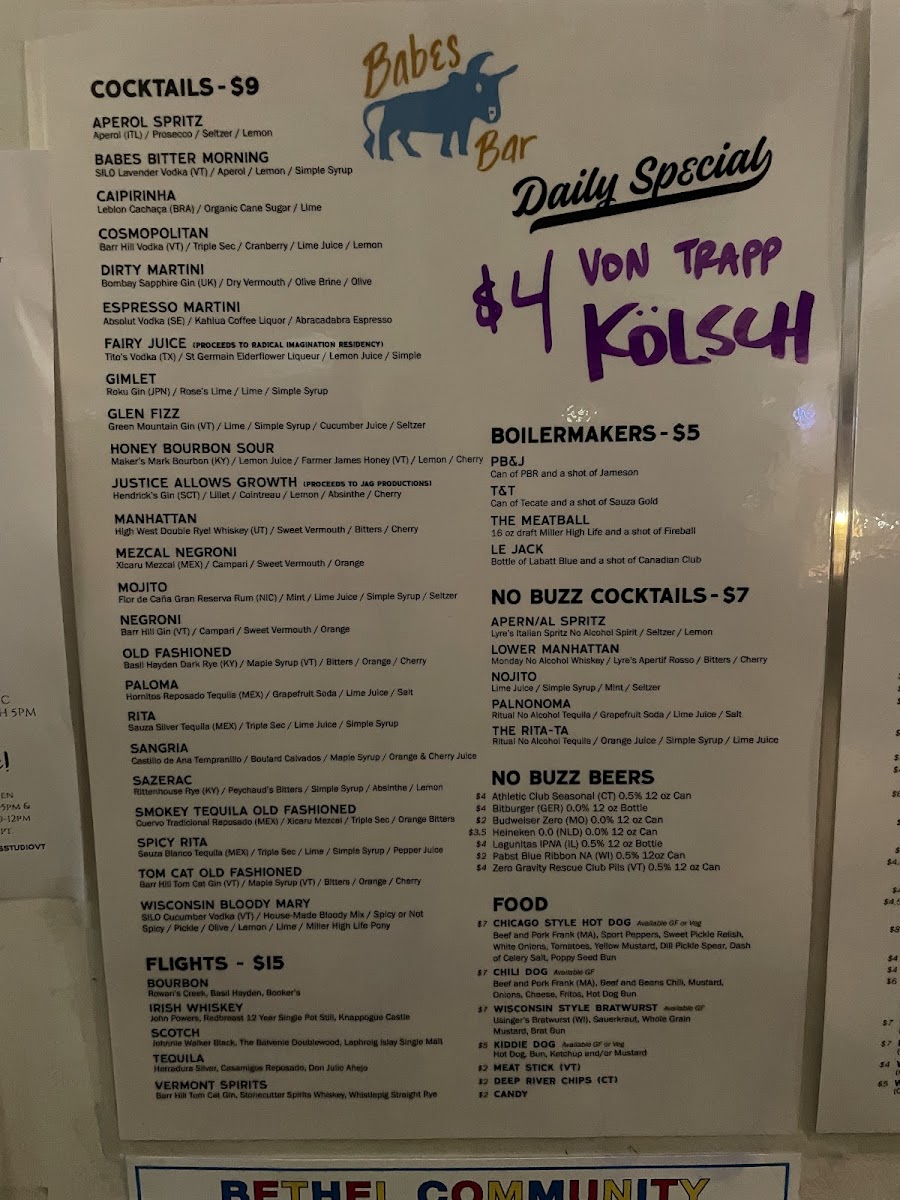 Babes
Bar
COCKTAILS - $9
APEROL SPRITZ
Aperol (ITL) / Prosecco / Seltzer / Lemon
BABES BITTER MORNING
SILO Lavender Vodka (VT) / Aperol / Lemon / Simple Syrup
CAIPIRINHA
Leblon Cachaça (BRA) / Organic Cane Sugar / Lime
COSMOPOLITAN
Barr Hill Vodka (VT) / Triple Sec / Cranberry / Lime Juice / Lemon
DIRTY MARTINI
Bombay Sapphire Gin (UK) / Dry Vermouth / Olive Brine / Olive
ESPRESSO MARTINI
Absolut Vodka (SE) / Kahlua Coffee Liquor / Abracadabra Espresso
FAIRY JUICE (PROCEEDS TO RADICAL IMAGINATION RESIDENCY)
Tito's Vodka (TX) / St Germain Elderflower Liqueur / Lemon Juice / Simple
GIMLET
Roku Gin (JPN) / Rose's Lime / Lime / Simple Syrup
GLEN FIZZ
Green Mountain Gin (VT) / Lime / Simple Syrup / Cucumber Juice / Seltzer
HONEY BOURBON SOUR
Maker's Mark Bourbon (KY) / Lemon Juice / Farmer James Honey (VT) / Lemon / Cherry
JUSTICE ALLOWS GROWTH (PROCEEDS TO JAG PRODUCTIONS)
Hendrick's Gin (SCT) / Lillet / Cointreau / Lemon / Absinthe / Cherry
MANHATTAN
High West Double Rye! Whiskey (UT) / Sweet Vermouth / Bitters / Cherry
MEZCAL NEGRONI
Xicaru Mezcal (MEX) / Campari / Sweet Vermouth / Orange
MOJITO
Flor de Caña Gran Reserva Rum (NIC) / Mint / Lime Juice / Simple Syrup / Seltzer
NEGRONI
Barr Hill Gin (VT) / Campari / Sweet Vermouth / Orange
OLD FASHIONED
Basil Hayden Dark Rye (KY) / Maple Syrup (VT) / Bitters / Orange / Cherry
PALOMA
Hornitos Reposado Tequila (MEX) / Grapefruit Soda / Lime Juice / Salt
RITA
Sauza Silver Tequila (MEX) / Triple Sec / Lime Juice / Simple Syrup
SANGRIA
Castillo de Ana Tempranillo / Boulard Calvados / Maple Syrup / Orange & Cherry Juice
SAZERAC
Rittenhouse Rye (KY) / Peychaud's Bitters / Simple Syrup / Absinthe / Lemon
SMOKEY TEQUILA OLD FASHIONED
Cuervo Tradicional Reposado (MEX) / Xicaru Mezcal / Triple Sec / Orange Bitters
SPICY RITA
Sauza Blanco Tequila (MEX) / Triple Sec / Lime / Simple Syrup / Pepper Juice
TOM CAT OLD FASHIONED
Barr Hill Tom Cat Gin (VT) / Maple Syrup (VT) / Bitters / Orange / Cherry
WISCONSIN BLOODY MARY
SILO Cucumber Vodka (VT) / House-Made Bloody Mix / Spicy or Not
Spicy / Pickle / Olive / Lemon / Lime / Miller High Life Pony
FLIGHTS - $15
BOURBON
Rowan's Creek, Basil Hayden, Booker's
IRISH WHISKEY
John Powers, Redbreast 12 Year Single Pot Still, Knappogue Castle
SCOTCH
Johnnie Walker Black, The Balvenie Doublewood, Laphroig Islay Single Malt
TEQUILA
Herradura Silver, Casamigos Reposado, Don Julio Añejo
VERMONT SPIRITS
Barr Hill Tom Cat Gin, Stonecutter Spirits Whiskey, Whistlepig Straight Rye
Daily Special
$4 VON TRAPP
KÖLSCH
BOILERMAKERS - $5
PB&J
Can of PBR and a shot of Jameson
T&T
Can of Tecate and a shot of Sauza Gold
THE MEATBALL
16 oz draft Miller High Life and a shot of Fireball
LE JACK
Bottle of Labatt Blue and a shot of Canadian Club
NO BUZZ COCKTAILS - $7
APERN/AL SPRITZ
Lyre's Italian Spritz No Alcohol Spirit / Seltzer / Lemon
LOWER MANHATTAN
Monday No Alcohol Whiskey / Lyre's Apertif Rosso / Bitters / Cherry
NOJITO
Lime Juice / Simple Syrup / Mint / Seltzer
PALNONOMA
Ritual No Alcohol Tequila / Grapefruit Soda / Lime Juice / Salt
THE RITA-TA
Ritual No Alcohol Tequila / Orange Juice / Simple Syrup / Lime Juice
NO BUZZ BEERS
$4 Athletic Club Seasonal (CT) 0.5% 12 oz Can
$4 Bitburger (GER) 0.0% 12 oz Bottle
$2 Budweiser Zero (MO) 0.0% 12 oz Can
$3.5 Heineken 0.0 (NLD) 0.0% 12 oz Can
$4 Lagunitas IPNA (IL) 0.5% 12 oz Bottle
$2 Pabst Blue Ribbon NA (WI) 0.5% 12oz Can
$4 Zero Gravity Rescue Club Pils (VT) 0.5% 12 oz Can
FOOD
$7 CHICAGO STYLE HOT DOG Available GF or Veg
Beef and Pork Frank (MA), Sport Peppers, Sweet Pickle Relish,
White Onions, Tomatoes, Yellow Mustard, Dill Pickle Spear, Dash
of Celery Salt, Poppy Seed Bun
$7 CHILI DOG Available GF
Beef and Pork Frank (MA), Beef and Beans Chili, Mustard,
Onions, Cheese, Fritos, Hot Dog Bun
$7 WISCONSIN STYLE BRATWURST Available GF
Usinger's Bratwurst (WI), Sauerkraut, Whole Grain
Mustard, Brat Bun
$5 KIDDIE DOG Available GF or Veg
Hot Dog, Bun, Ketchup and/or Mustard
$2 MEAT STICK (VT)
$2 DEEP RIVER CHIPS (CT)
$2 CANDY
BETHEL COMMUNITY